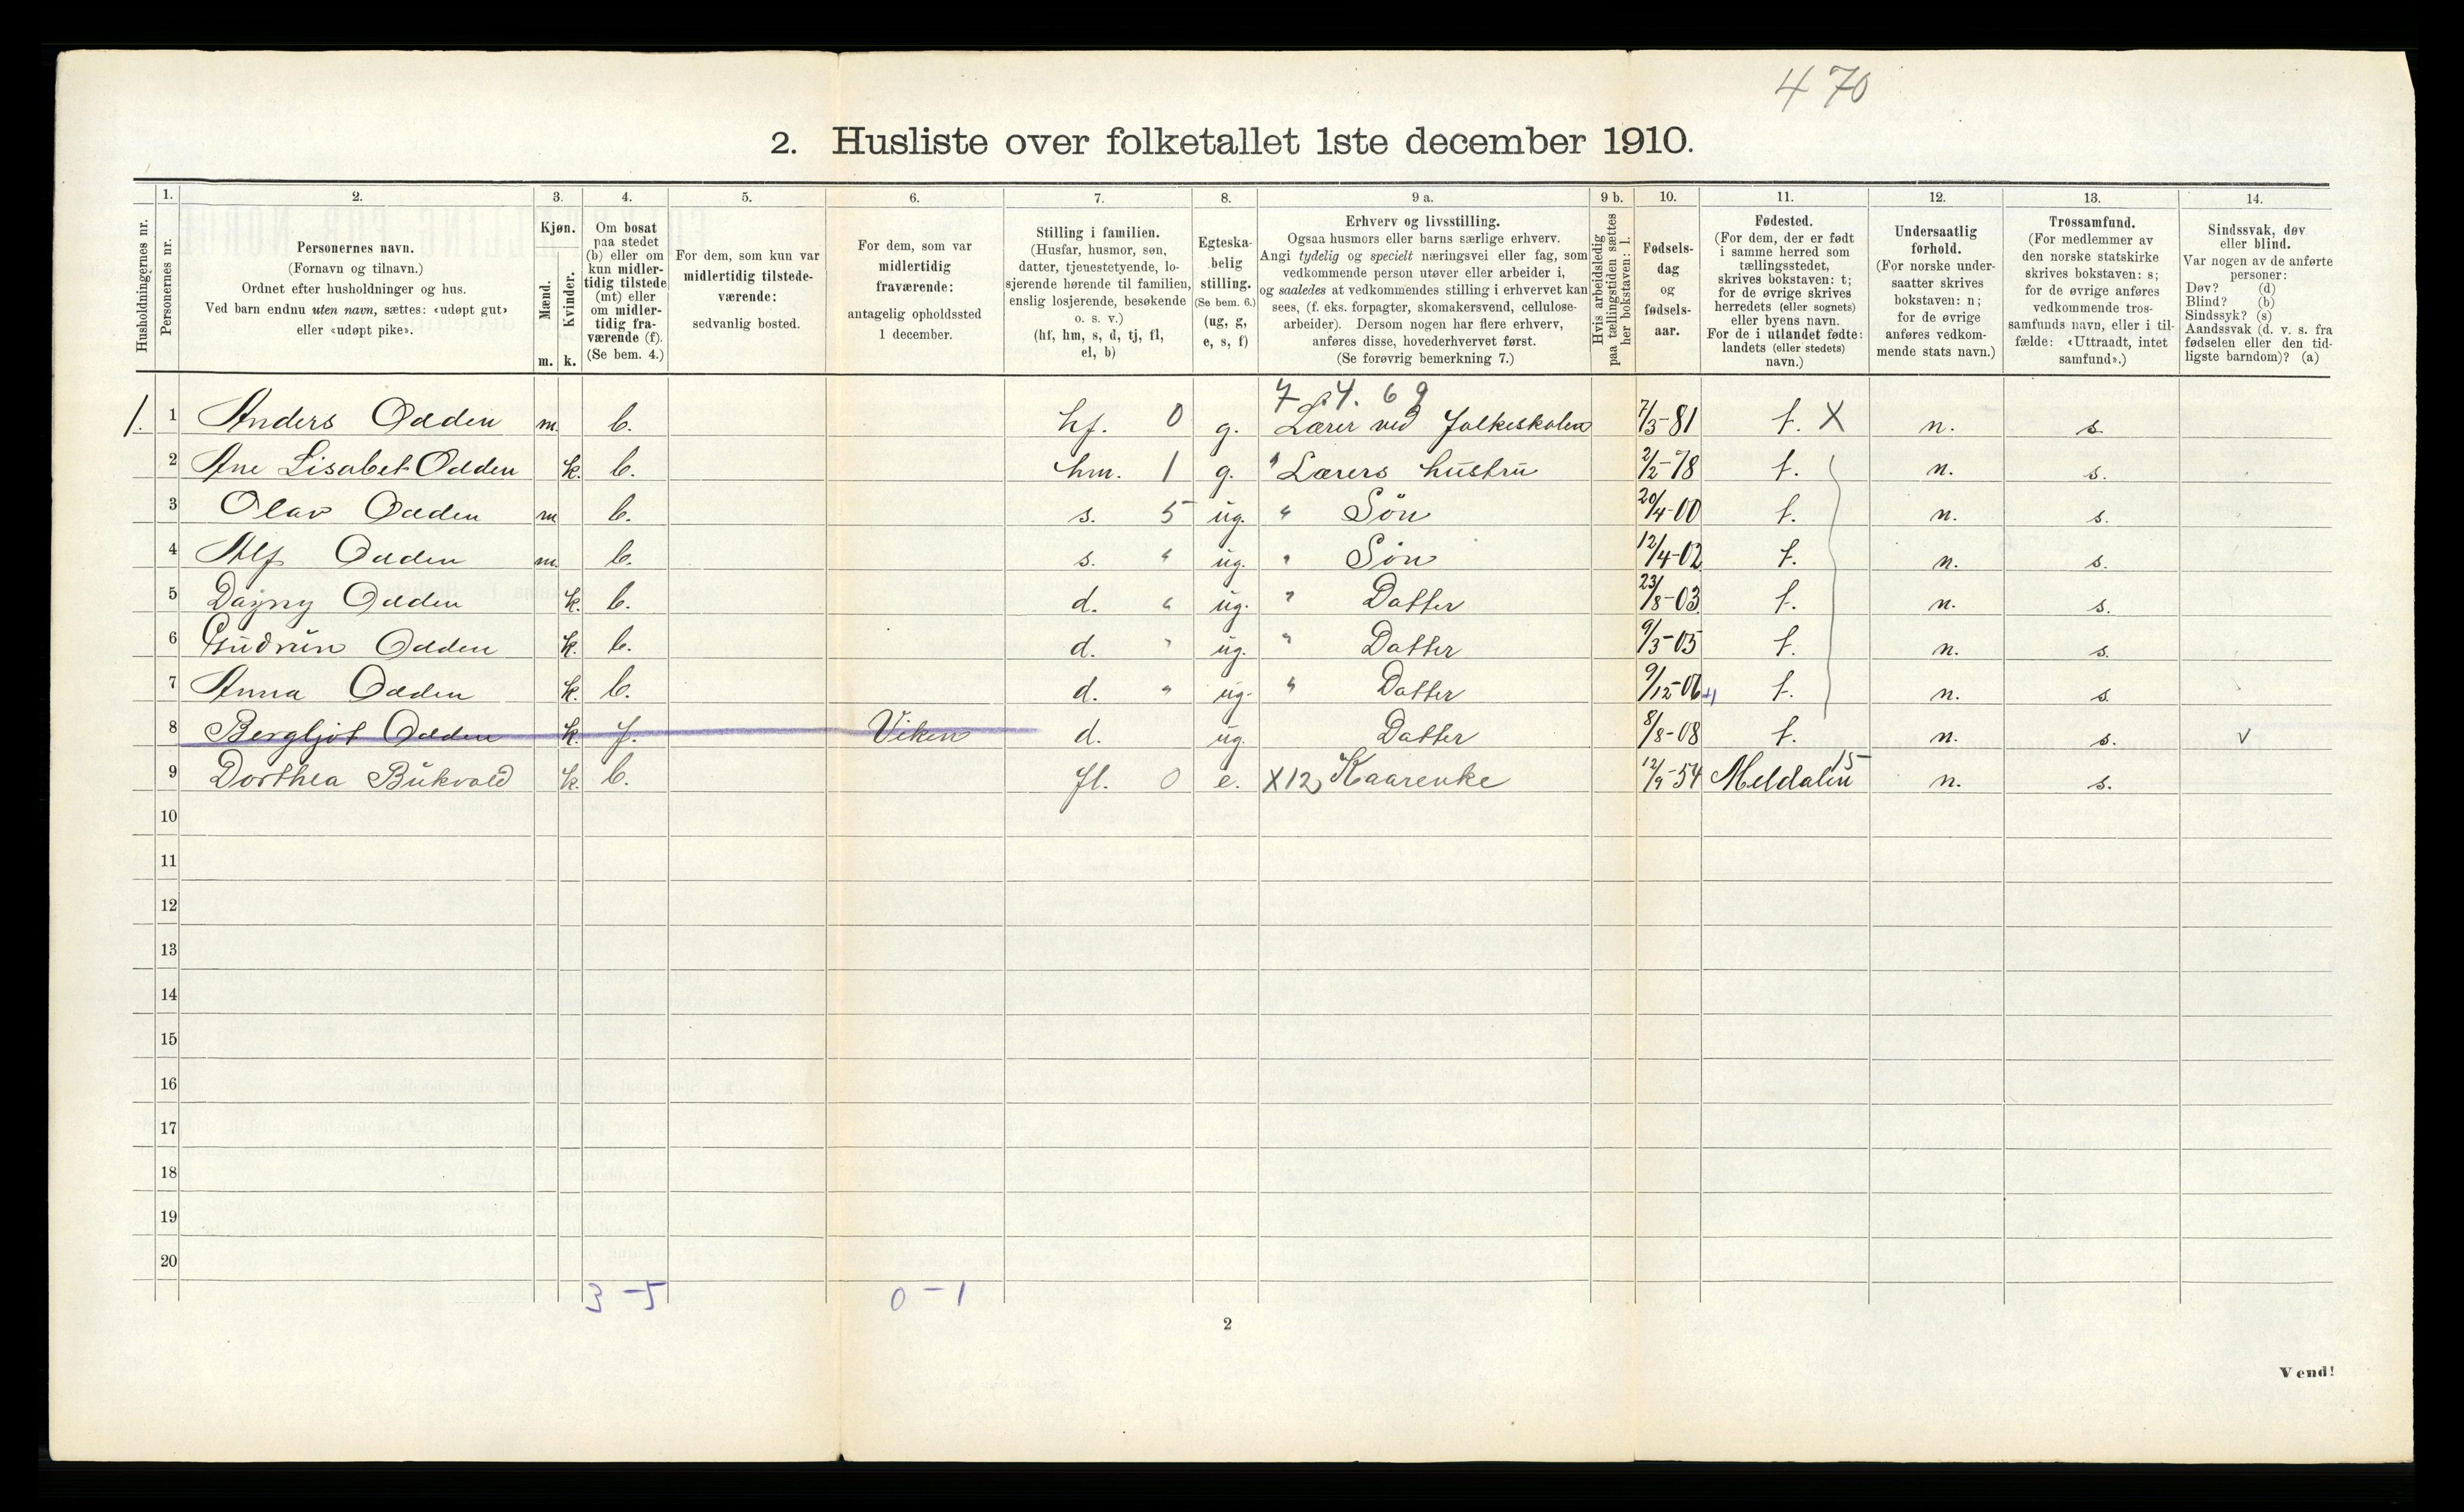 470
2. Husliste over folketallet 1ste december 1910.
Husholdningernes nr.
1. Personernes nr.
2. Personernes navn. (Fornavn og tilnavn.) Ordnet efter husholdninger og hus. Ved barn endnu uten navn, sættes: «udøpt gut» eller «udøpt pike».
3. Kjøn. Mænd. m. Kvinder. k.
4. Om bosat paa stedet (b) eller om kun midler-tidig tilstede (mt) eller om midler-tidig fra-værende (f). (Se bem. 4.)
5. For dem, som kun var midlertidig tilstede-værende: sedvanlig bosted.
6. For dem, som var midlertidig fraværende: antagelig opholdssted 1 december.
7. Stilling i familien. (Husfar, husmor, søn, datter, tjenestetyende, lo-sjerende hørende til familien, enslig losjerende, besøkende o. s. v.) (hf, hm, s, d, tj, fl, el, b)
8. Egteska-belig stilling. (Se bem. 6.) (ug, g, e, s, f)
9 a. Erhverv og livsstilling. Ogsaa husmors eller barns særlige erhverv. Angi tydelig og specielt næringsvei eller fag, som vedkommende person utøver eller arbeider i, og saaledes at vedkommendes stilling i erhvervet kan sees, (f. eks. forpagter, skomakersvend, cellulose-arbeider). Dersom nogen har flere erhverv, anføres disse, hovederhvervet først. (Se forøvrig bemerkning 7.)
9 b. Hvis arbeidsledig paa tællingstiden sættes her bokstaven: l.
10. Fødsels-dag og fødsels-aar.
11. Fødested. (For dem, der er født i samme herred som tællingsstedet, skrives bokstaven: t; for de øvrige skrives herredets (eller sognets) eller byens navn. For de i utlandet fødte: landets (eller stedets) navn.)
12. Undersaatlig forhold. (For norske under-saatter skrives bokstaven: n; for de øvrige anføres vedkom-mende stats navn.)
13. Trossamfund. (For medlemmer av den norske statskirke skrives bokstaven: s; for de øvrige anføres vedkommende tros-samfunds navn, eller i til-fælde: «Uttraadt, intet samfund».)
14. Sindssvak, døv eller blind. Var nogen av de anførte personer: Døv? (d) Blind? (b) Sindssyk? (s) Aandssvak (d. v. s. fra fødselen eller den tid-ligste barndom)? (a)
1. 1 Anders Odden m. b. hf. 0 g. Lærer ved folkeskolen 7/3-81 t. X n. s.
2 Ane Lisabet Odden k. b. hm. 1 g. " Lærers hustru 2/2-78 t. n. s.
3 Olav Odden m b. s. 5 ug. " Søn 20/4-00 t. n. s.
4 Alf Odden m. b. s. " ug. " Søn 12/4-02 t. n. s.
5 Dagny Odden k. b. d. " ug. " Datter 23/8-03 t. n. s.
6 Gudrun Odden k. b. d. " ug. " Datter 9/3-05 t. n. s.
7 Anna Odden k. b. d. " ug. " Datter 9/12-06 t. n. s.
8 Bergljot Odden k. f. Viken d. ug. Datter 8/8-08 t. n. s. v
9 Dorthea Bukvold k. b. fl. 0 e. X12, Kaarenke 12/9-54 Meldalen 15 n. s.
10
11
12
13
14
15
16
17
18
19
20
3 - 5 0 - 1
2
Vend!